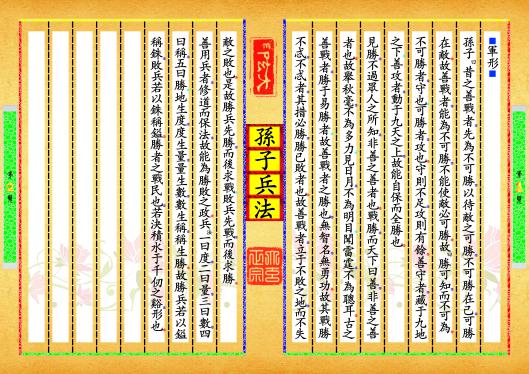 ■軍形■
孫子曰昔之善戰者先為不可勝以待敵之可勝不可勝在己可勝
在敵故善戰者能為不可勝不能使敵必可勝故曰勝可知而不可為
不可勝者守也可勝者攻也守則不足攻則有餘善守者藏于九地
之下善攻者動于九天之上故能自保而全勝也
見勝不過眾人之所知非善之善者也戰勝而天下曰善非善之善
者也故舉秋毫不為多力見日月不為明目聞雷霆不為聰耳古之
善戰者勝于易勝者故善戰者之勝也無智名無勇功故其戰勝
不忒不忒者其措必勝勝已敗者也故善戰者立于不敗之地而不失
孫子兵法
敵之敗也是故勝兵先勝而後求戰敗兵先戰而後求勝
善用兵者修道而保法故能為勝敗之政兵法一曰度二曰量三曰數四
曰稱五曰勝地生度度生量量生數數生稱稱生勝故勝兵若以鎰
稱銖敗兵若以銖稱鎰勝者之戰民也若決積水于千仞之谿形也